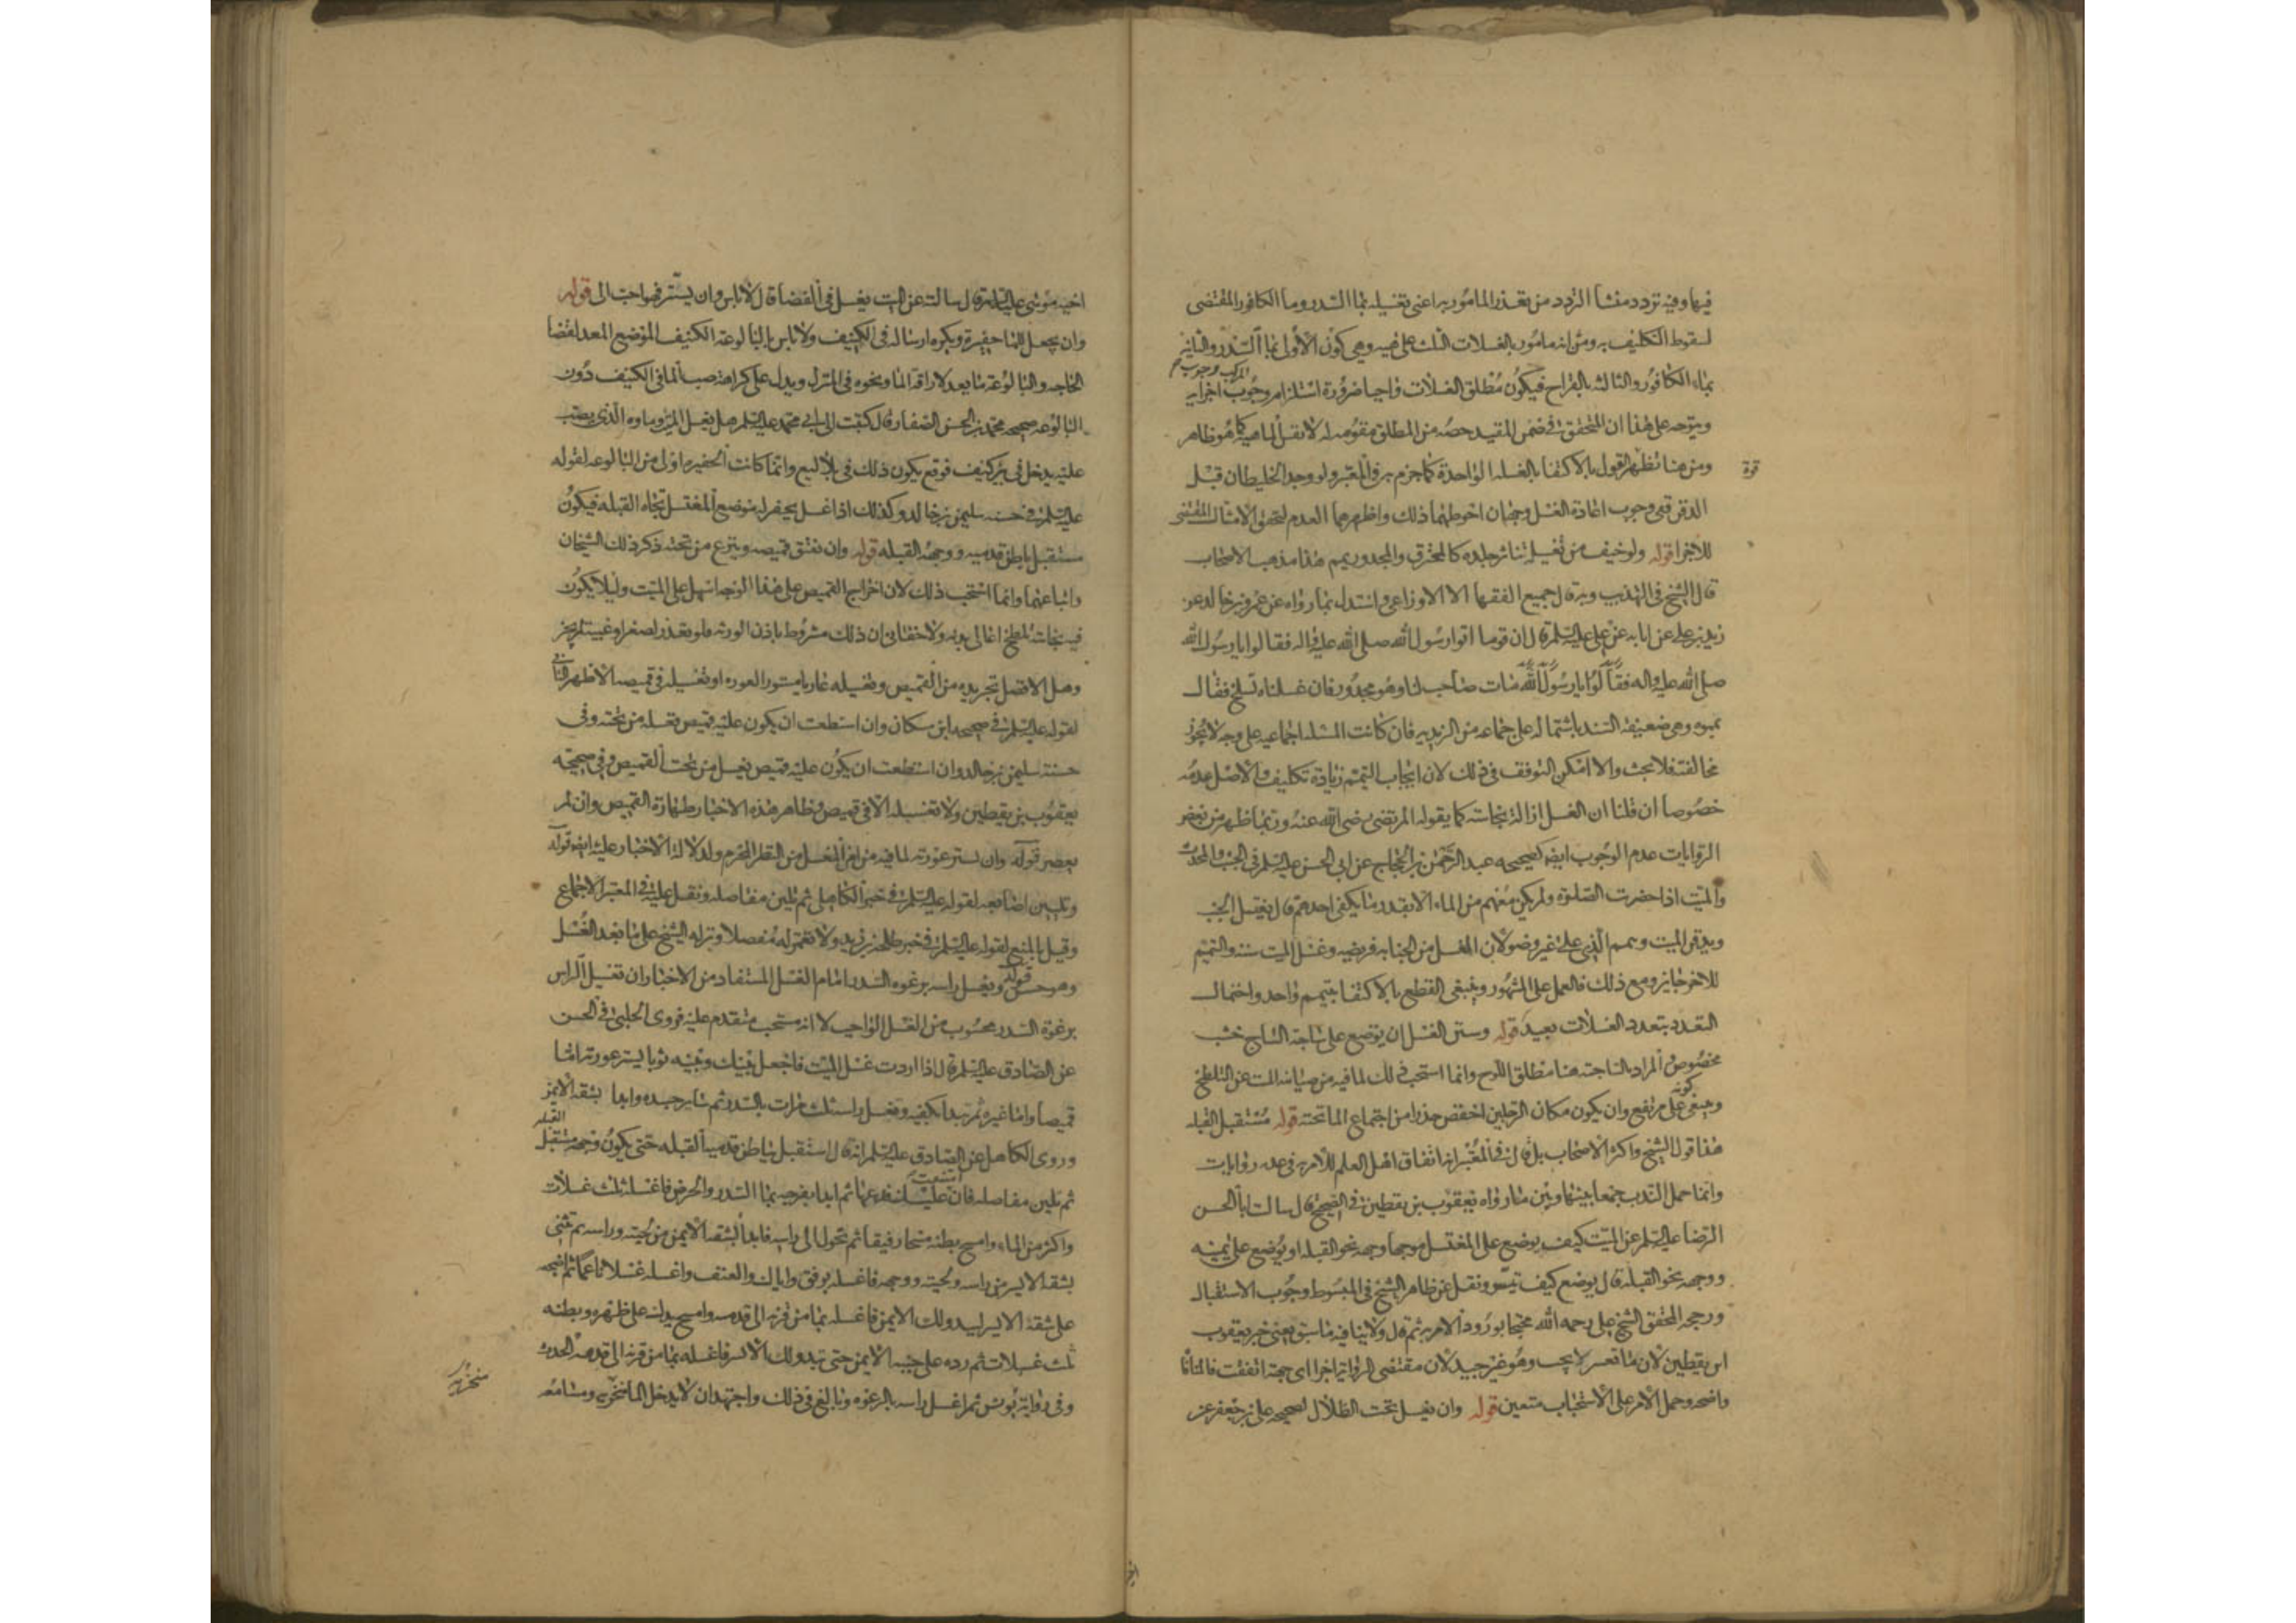 فيها وفيه تردد منشأ التردد من تعذر المأمور به اعنى تغسيله بماء السدر وماء الكافور المقتضى
لسقوط التكليف به ومن انه مامور بالغسلات الثلث على هيئة وهى كون الأولى بماء السدر والثانية
بماء الكافور والثالثة بالقراح فيكون مطلق الغسلات واجبا ضرورة استلزام وجوب المركب وجوب اجزايه
ويتوجه على هذا ان المتحقق فى ضمن المقيد حصة من المطلق متقومة به لا نفس الماهية كما هو ظاهر
ومن هنا تظهر القول بالاكتفا بالغسلة الواحدة كما جزم به فى المعتبر ولو وجد الخليطان قبل
قوة
الدفن ففى وجوب اعادة الغسل وجهان احوطهما ذلك واظهرهما العدم لتحقق الامتثال المقتضى
للاجزا قوله ولو خيف من تغسيله تناثر جلده كالمحترق والمجدور ييمم هذا مذهب الاصحاب
قال الشيخ فى التهذيب وبه قال جميع الفقها الا الاوزاعى واستدل بما رواه عن عمرو بن خالد عن
زيد بن على عن ابايه عن على عليه السلم قال ان قوما اتوا رسول الله صلى الله عليه واله فقالوا يا رسول الله
صلى الله عليه واله فقالوا يا رسول الله مات صاحب لنا وهو مجدور فان غسلناه تسلخ فقال
يمموه وهى ضعيفة السند باشتماله على جماعه من الزيدية فان كانت المسئلة اجماعية على وجه لا يجوز
مخالفته فلا بحث والا امكن التوقف فى ذلك لان ايجاب التيمم زيادة تكليف والاصل عدمه
خصوصا ان قلنا ان الغسل ازالة نجاسة كما يقوله المرتضى رضى الله عنه وربما ظهر من بعض
الروايات عدم الوجوب ايضا كصحيحه عبد الرحمن بن الحجاج عن ابى الحسن عليه السلم فى الجنب والمحدث
والميت اذا حضرت الصلوة ولم يكن معهم من الماء الا بقدر ما يكفى احدهم قال يغتسل الجنب
ويدفن الميت ويتيمم الذى على غير وضو لان الغسل من الجنابه فريضه وغسل الميت سنة والتيمم
للاخر جايز ومع ذلك فالعمل على المشهور وينبغى القطع بالاكتفا بتيمم واحد واحتمال
التعدد بتعدد الغسلات بعيد قوله وسنن الغسل ان يوضع على ساجة الساج خشب
مخصوص والمراد بالساجة هنا مطلق اللوح وانما استحب ذلك لما فيه من صيانة الميت عن التلطخ
وينبغى كونه على مرتفع وان يكون مكان الرجلين اخفض حذرا من اجتماع الما تحته قوله مستقبل القبلة
هذا قول الشيخ واكثر الاصحاب بل قال فى المعتبر انه اتفاق اهل العلم للامر به فى عدة روايات
وانما حمل الندب جمعا بينها وبين ما رواه يعقوب بن يقطين فى الصحيح قال سالت ابا الحسن
الرضا عليه السلم عن الميت كيف يوضع على المغتسل موجها وجهه نحو القبلة او يوضع على يمينه
ووجهه نحو القبلة قال يوضع كيف تيسر ونقل عن ظاهر الشيخ فى المبسوط وجوب الاستقبال
ورجحه المحقق الشيخ على رحمه الله محتجا بورود الامر به ثم قال ولا ينافيه ما سبق يعنى خبر يعقوب
ابن يقطين لان ما تعسر لا يجب وهو غير جيد لان مقتضى الرواية اجزا اى جهة اتفقت فالمنافاة
واضحه وحمل الامر على الاستحباب متعين قوله وان يغسل تحت الظلال لصحيحه على بن جعفر عن
اخيه موسى عليه السلم قال سالته عن الميت يغسل فى الفضا قال لا باس وان يستر فهو احب الى قوله
وان يجعل للما حفيرة ويكره ارساله فى الكنيف ولا باس بالبالوعة الكنيف الموضع المعد لقضا
الحاجه والبالوعة ما يعد لاراقة الما ونحوه فى المنزل ويدل على كراهة صب الما فى الكنيف دون
البالوعه صحيحه محمد بن الحسن الصفار قال كتبت الى ابى محمد عليه السلم هل يغسل الميت وماوه الذى يصب
عليه يدخل فى بئر كنيف فوقع يكون ذلك فى بلاليع وانما كانت الحفيره اولى من البالوعه لقوله
عليه السلم فى حسنة سليمن بن خالد وكذلك اذا غسل يحفر له موضع المغتسل تجاه القبله فيكون
مستقبل بباطن قدميه ووجهه القبله قوله وان يفتق قميصه وينزع من تحته ذكر ذلك الشيخان
واتباعهما وانما استحب ذلك لان اخراج القميص على هذا الوجه اسهل على الميت وليلا يكون
فيه نجاسة تلطخ اعالى بدنه ولا خفا فى ان ذلك مشروط باذن الورثه فلو تعذر لصغر او غيبة لم يجز
وهل الافضل تجريده من القميص وتغسيله عاريا مستور العوره او تغسيله فى قميصه الاظهر الثانى
لقوله عليه السلم فى صحيحه ابن مسكان وان استطعت ان يكون عليه قميص تغسله من تحته وفى
حسنة سليمن بن خالد وان استطعت ان يكون عليه قميص فيغسل من تحت القميص وفى صحيحة
يعقوب بن يقطين ولا تغسيله الا فى قميص وظاهر هذه الاخبار طهارة القميص وان لم
يعصر قوله وان تستر عورته لما فيه من امن الغسل من النظر المحرم ولدلالة الاخبار عليه ايضا قوله
وتليين اصابعه لقوله عليه السلم فى خبر الكاهلى ثم تلين مفاصله ونقل عليه فى المعتبر الاجماع
وقيل بالمنع لقوله عليه السلم فى خبر طلحة بن زيد ولا تغمز له مفصلا ونزله الشيخ على ما بعد الغسل
وهو حسن قوله ويغسل راسه برغوه السدر امام الغسل المستفاد من الاخبار ان تغسيل الراس
برغوة السدر محسوب من الغسل الواجب لا انه مستحب متقدم عليه فروى الحلبى فى الحسن
عن الصادق عليه السلم قال اذا اردت غسل الميت فاجعل بينك وبينه ثوبا يستر عورته اما
قميصا واما غيره ثم تبدا بكفيه وتغسل راسه ثلث مرات بالسدر ثم ساير جسده وابدا بشقه الايمن
وروى الكاهلى عن الصادق عليه السلم انه قال استقبل بباطن قدميه القبله حتى يكون وجهه مستقبل القبله
ثم تلين مفاصله فان امتنعت عليك فدعها ثم ابدا بفرجه بماء السدر والحرض فاغسله ثلث غسلات
واكثر من الماء وامسح بطنه مسحا رفيقا ثم تحول الى راسه فابدا بشقه الايمن من لحيته وراسه ثم تثنى
بشقه الايسر من راسه ولحيته ووجهه فاغسله برفق واياك والعنف واغسله غسلا ناعما ثم اضجعه
على شقه الايسر ليبدو لك الايمن فاغسله بماء من قرنه الى قدمه وامسح يدك على ظهره وبطنه
ثلث غسلات ثم رده على جنبه الايمن حتى يبدو لك الايسر فاغسله بما من قرنه الى قدمه الحديث
وفى رواية يونس ثم اغسل راسه بالرغوه وبالغ فى ذلك واجتهد ان لا يدخل الما منخريه ومسامعه
منخريه